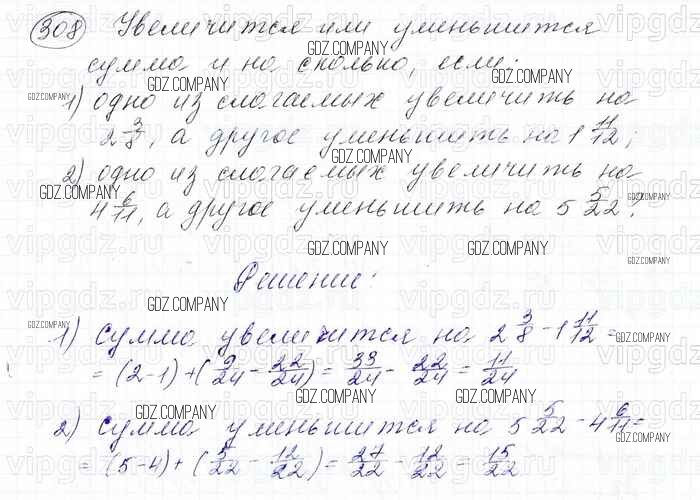 308 Увеличится или уменьшится
сумма и на сколько, если:
1) одно из слагаемых увеличить на
2 3/8, а другое уменьшить на 1 11/12;
2) одно из слагаемых увеличить на
4 6/11, а другое уменьшить на 5 5/22?
Решение:
1) Сумма увеличится на 2 3/8 - 1 11/12 =
= (2-1) + (9/24 - 22/24) = 33/24 - 22/24 = 11/24
2) Сумма уменьшится на 5 5/22 - 4 6/11 =
= (5-4) + (5/22 - 12/22) = 27/22 - 12/22 = 15/22
GDZ.COMPANY
vipgdz.ru